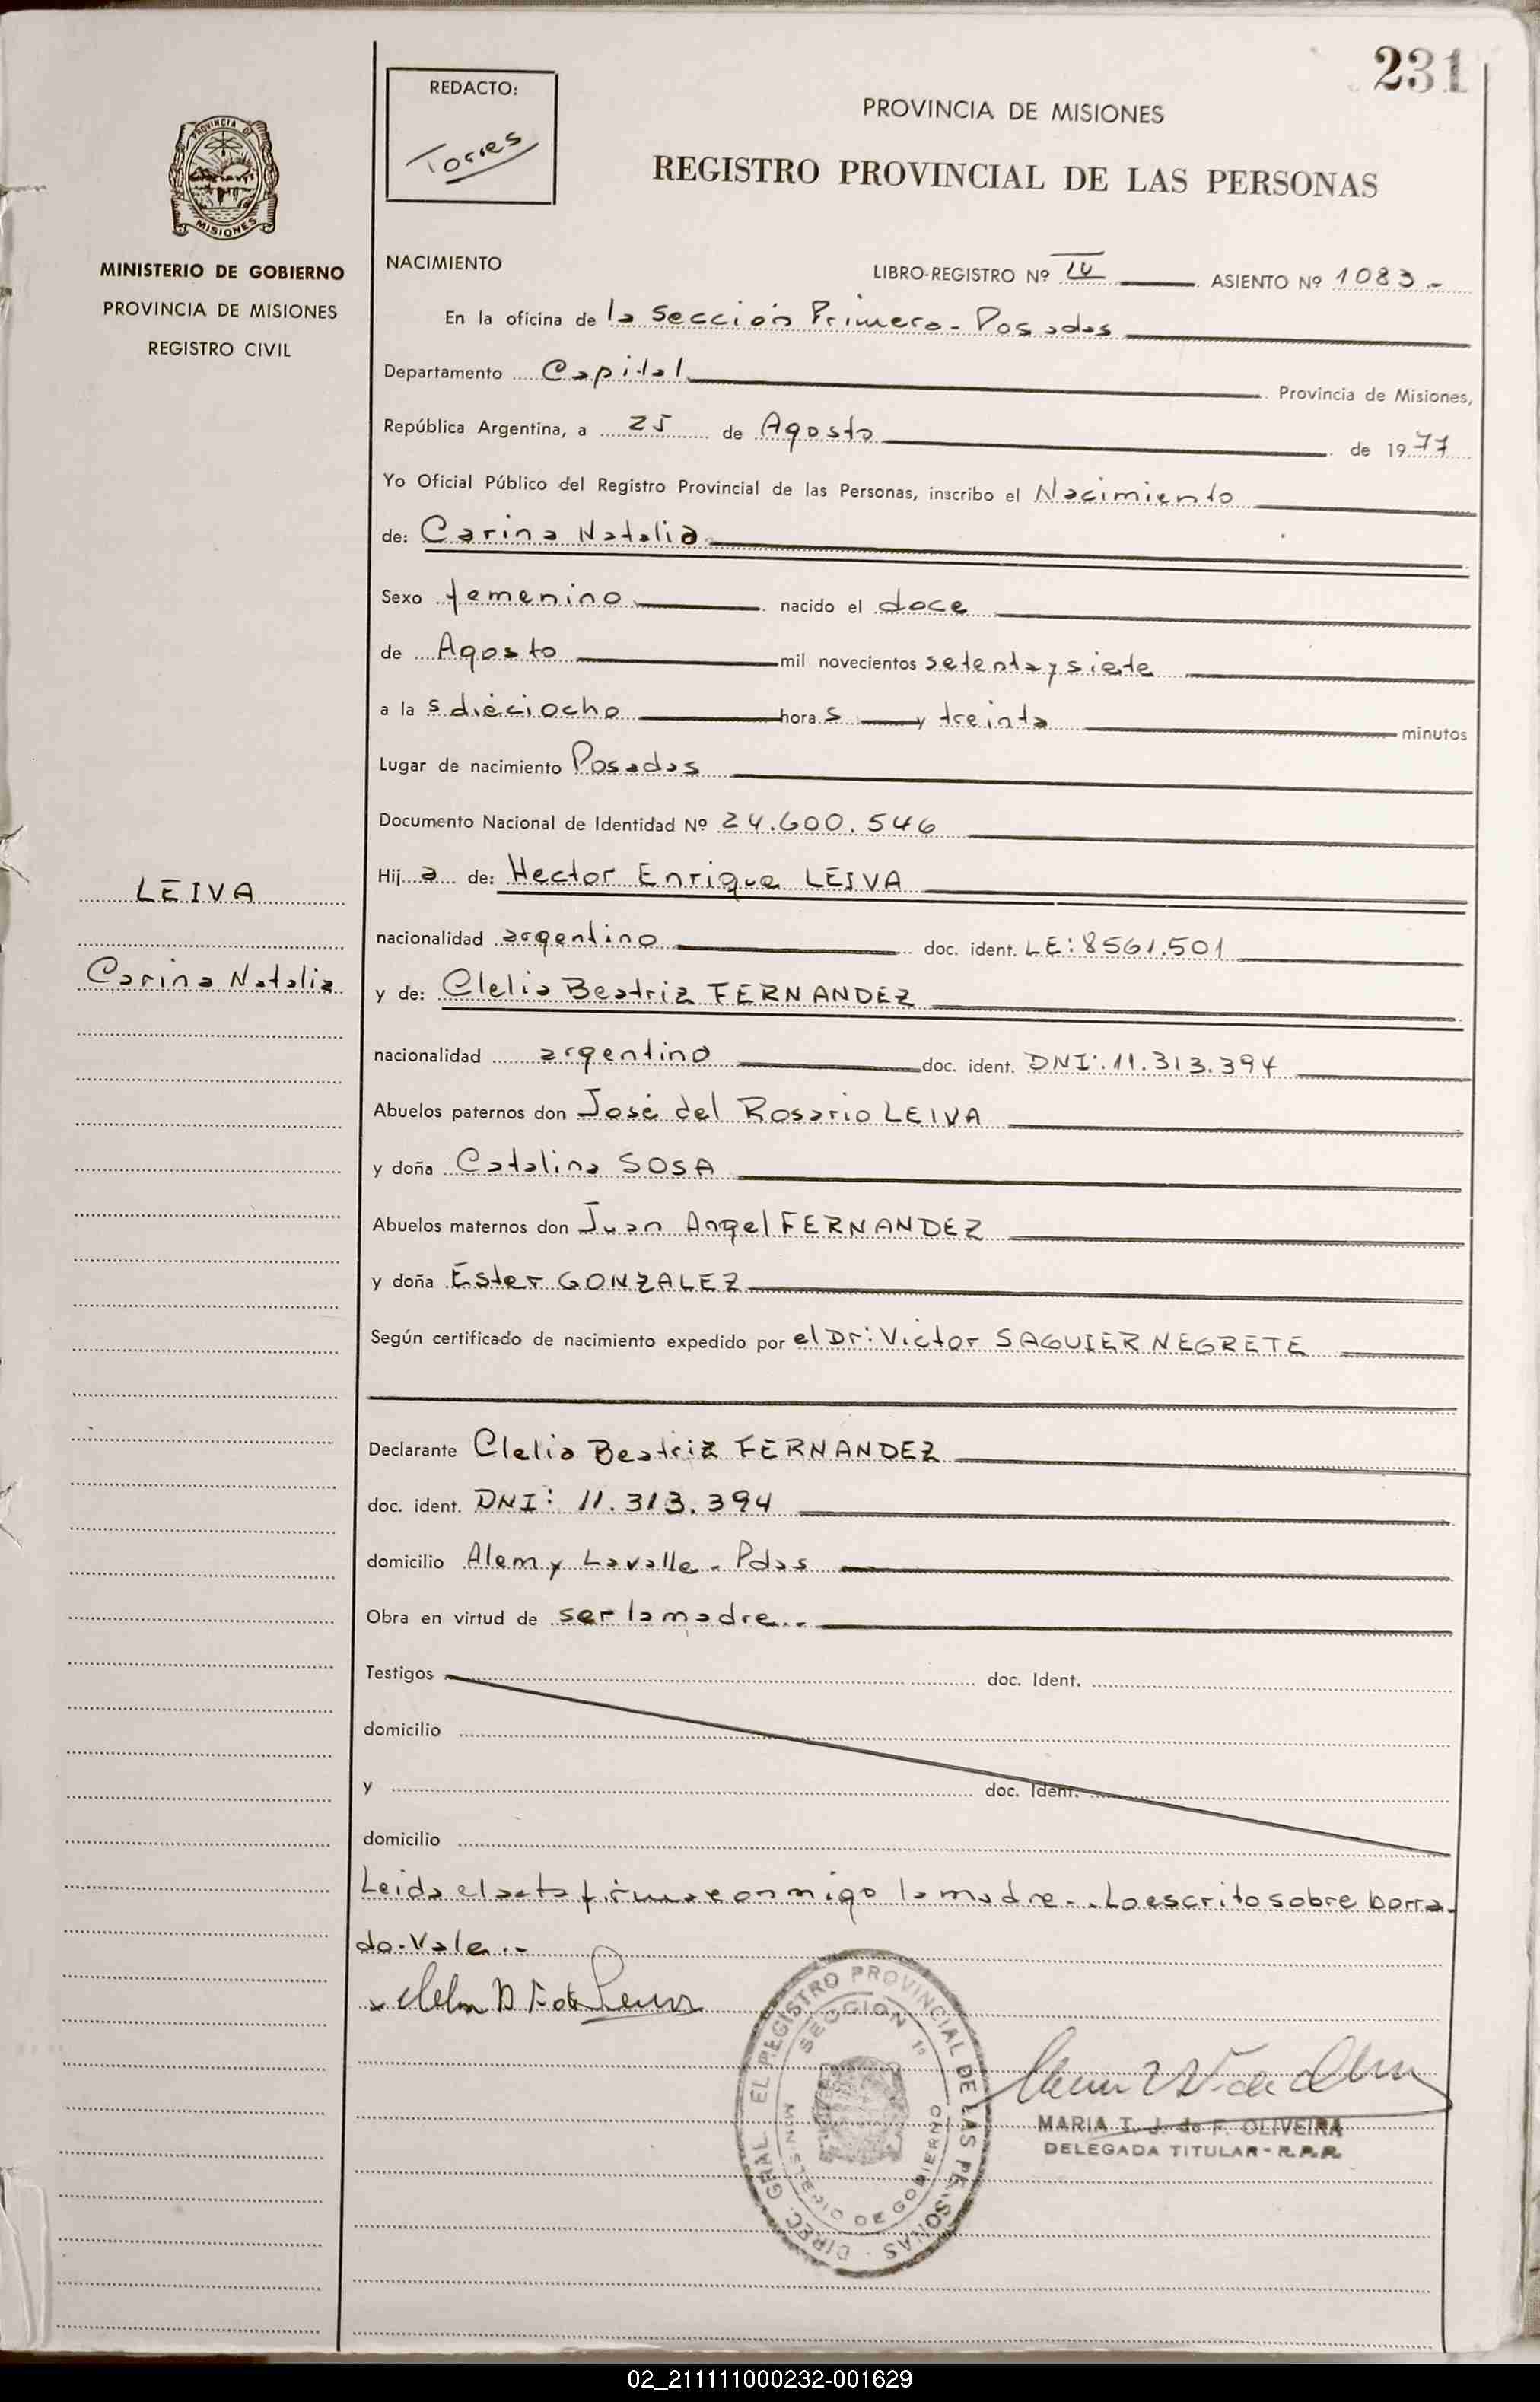 231
REDACTO:
Torres
PROVINCIA DE MISIONES
REGISTRO PROVINCIAL DE LAS PERSONAS
PROVINCIA DE
MISIONES
MINISTERIO DE GOBIERNO
PROVINCIA DE MISIONES
REGISTRO CIVIL
NACIMIENTO
LIBRO-REGISTRO Nº IV ASIENTO Nº 1083.-
En la oficina de la Sección Primera - Posadas
Departamento Capital Provincia de Misiones,
República Argentina, a 25 de Agosto de 1977
Yo Oficial Público del Registro Provincial de las Personas, inscribo el Nacimiento
de: Carina Natalia
Sexo femenino nacido el doce
de Agosto mil novecientos setenta y siete
a la s dieciocho hora s y treinta minutos
Lugar de nacimiento Posadas
Documento Nacional de Identidad Nº 24.600.546
Hij a de: Hector Enrique LEIVA
LEIVA
nacionalidad argentino doc. ident. LE: 8561.501
Carina Natalia
y de: Clelia Beatriz FERNANDEZ
nacionalidad argentino doc. ident. DNI: 11.313.394
Abuelos paternos don José del Rosario LEIVA
y doña Catalina SOSA
Abuelos maternos don Juan Angel FERNANDEZ
y doña Ester GONZALEZ
Según certificado de nacimiento expedido por el Dr: Victor SAGUIER NEGRETE
Declarante Clelia Beatriz FERNANDEZ
doc. ident. DNI: 11.313.394
domicilio Alem y Lavalle - Pdas
Obra en virtud de ser la madre.-
Testigos doc. Ident.
domicilio
y doc. Ident.
domicilio
Leida el acta firma conmigo la madre.- Lo escrito sobre borra-
do - Vale.-
DIREC. GRAL. EL REGISTRO PROVINCIAL DE LAS PERSONAS
SECCION 1º
MINISTERIO DE GOBIERNO
MARIA T. J. de F. OLIVEIRA
DELEGADA TITULAR - R.P.P.
02_211111000232-001629